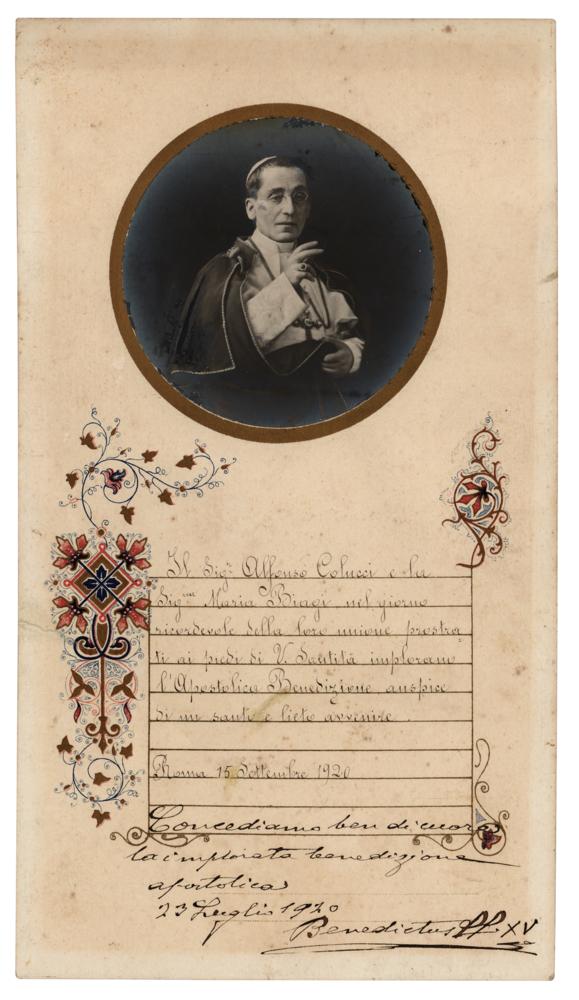 Il Sigr Alfonso Colucci e la
Sigina Maria Biagi nel giorno
ricordevole della loro unione prostra-
ti ai piedi di V. Santità implorano
l'Apostolica Benedizione auspice
di un santo e lieto avvenire.
Roma 15 Settembre 1920
Concediamo ben di cuore
la implorata benedizione
apostolica
23 Luglio 1920
Benedictus PP. XV